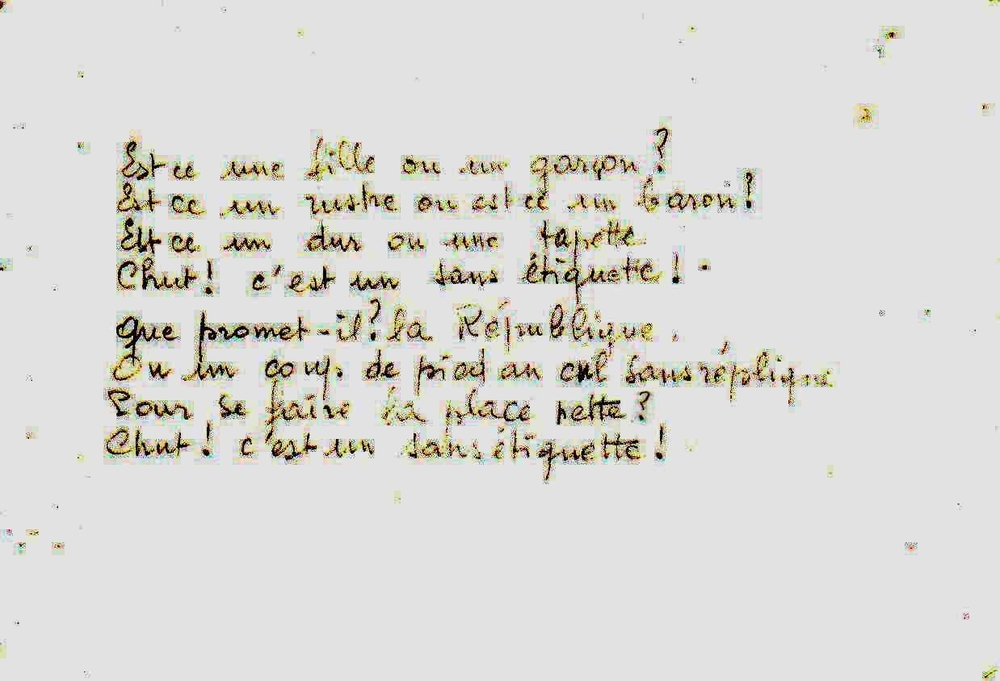 Est ce une fille ou un garçon?
Est ce un rustre ou est ce un baron?
Est ce un dur ou une tapette
Chut! c'est un sans étiquette!
Que promet-il? la République.
Ou un coup. de pied au cul sans réplique
Pour se faire la place nette?
Chut! c'est un sans étiquette!